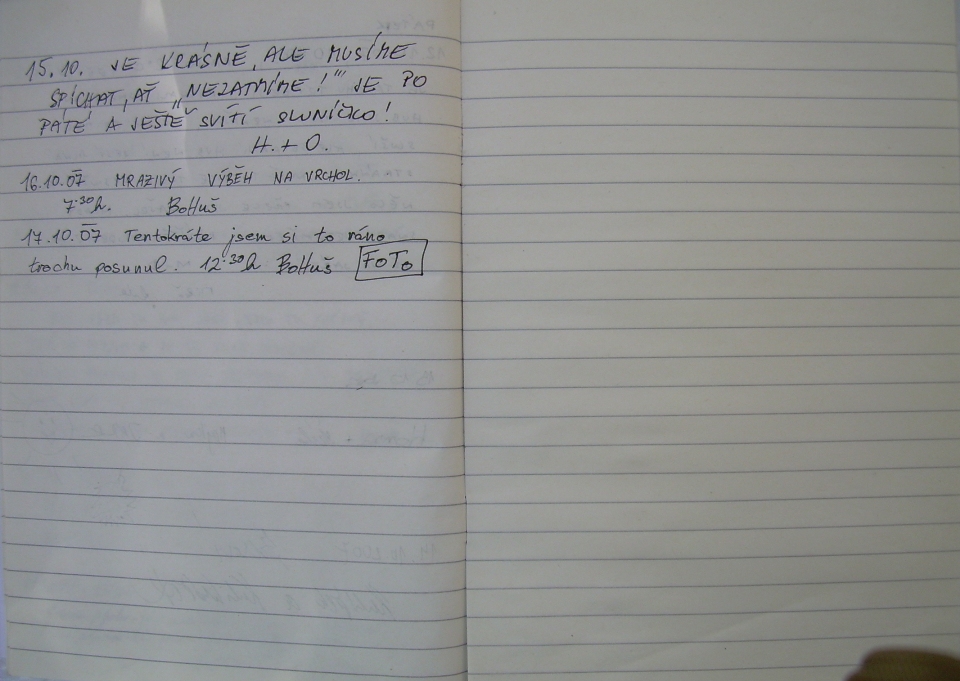 15.10. JE KRÁSNĚ, ALE MUSÍME
SPÍCHAT, AŤ „NEZATMÍME!‟ JE PO
PÁTÉ A JEŠTĚ SVÍTÍ SLUNÍČKO!
H. + O.
16.10.07 MRAZIVÝ VÝBĚH NA VRCHOL.
7³⁰h. BoHuš
17.10.07 Tentokráte jsem si to ráno
trochu posunul. 12³⁰h BoHuš FoTo